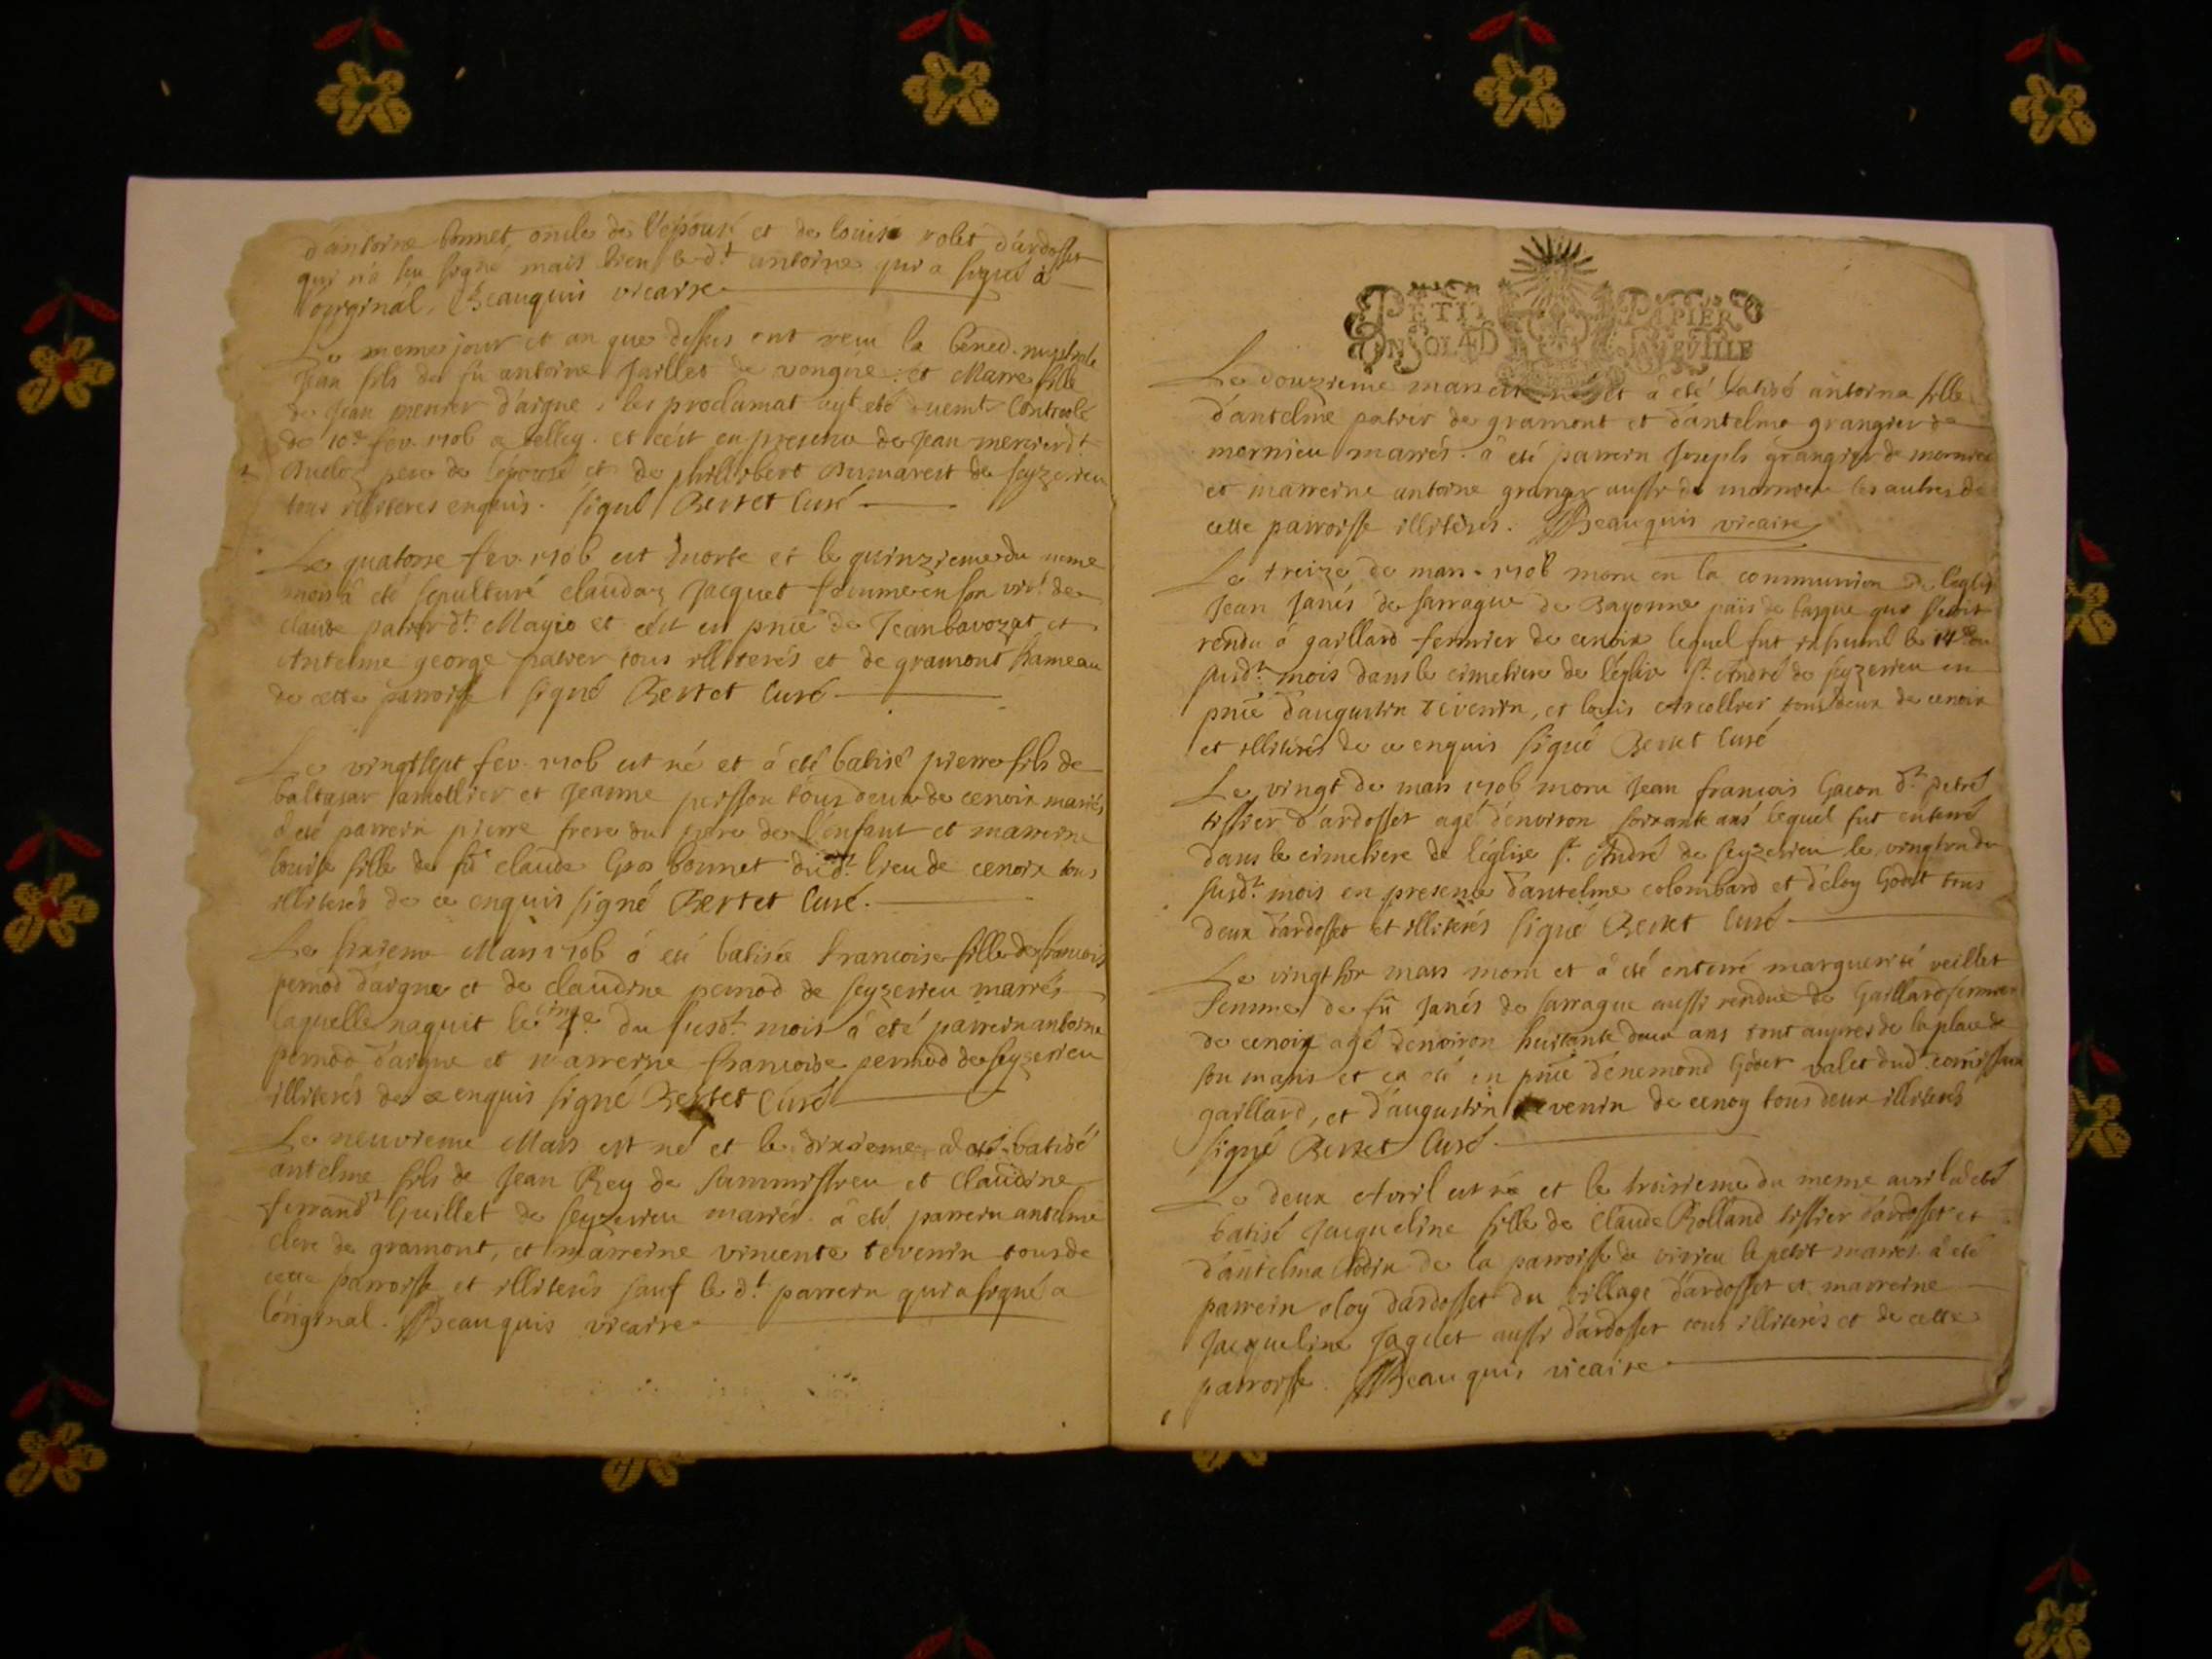 d'antoine bonnet oncle de l'épouse et de louise rolet d'ardosset
qui n'a seu signé mais bien le d.t antoine qui a signé à
l'original. Beauquis vicaire
Le meme jour et an que dessus ont receu la bened. nuptiale
Jean fils de fû antoine Juillet de vongne et Marie fille
de Jean mercier d'aigne, les proclamat ayt eté duemt. Controolé
de 10e fev. 1706 a belley. et cé'st en presence de Jean mercier d.t
pere de l'épouse et de philibert Dumarest de seyzerieu
tous illiteres enquis. signé Bertet Curé
Le quatorse fev. 1706 est morte et le quinzieme du meme
mois â eté sepulturé claudaz Jacquet femme en son viv.t de
claude patier d.t Magio et cé'st en pnce de Jean bavozat et
Antelme george patier tous illiterés et de gramont hameau
de cette parroisse signé Bertet Curé
Le vingtsept fev. 1706 est né et â eté batisé pierre fils de
baltasar amollier et Jeanne persson tous deux de cenoix mariés,
â eté parrein pierre frere du pere de l'enfant et marreine
louise fille de fû claude Gros bonnet dud.t lieu de cenoix tous
illiterés de ce enquis signé Bertet Curé.
Le sixieme Mars 1706 â eté batisée francoise fille de francois
pernod d'aigne et de claudine pernod de seyzerieu mariés
laquelle naquit le du susd.t mois â été parrein antoine
pernod d'aigne et marreine francoise pernod de seyzerieu
illiterés de ce enquis signé Bertet Curé
Le neuvieme Mars est né et le dixieme a eté batisé
antelme fils de Jean Rey de sammissieu et Claudine
ferrand d.t Guillet de seyzerieu mariés. â eté parrein antelme
clerc de gramont, et marreine vincente tevenin tous de
cette parroisse et illiterés sauf le d.t parrein qui a signé a
l'original. Beauquis vicaire
PETIT PAPIER
UN SOL 4 D LA FEUILLE
Le douzieme mars est né et â eté batisé antoina fille
d'antelme patier de gramont et d'antelme grangier de
mornieu mariés. â eté parrein Joseph grangier de mornieu
et marreine antoine grangr aussi de mornieu les autres de
cette parroisse illiterés. Beauquis vicaire
Le treize de mars 1706 moru en la communion de l'eglise
Jean Janés de sarrague de Bayonne païs de basque qui s'etoit
rendu à gaillard fermier de cenoix lequel fut inhumé le 14e du
susd.t mois dans le cimetiere de l'église S.t André de seyzerieu en
pnce d'augustin tevenin, et louis Amollier tous deux de cenoix
et illiterés de ce enquis signé Bertet Curé
Le vingt de mars 1706 moru Jean francois Gacon d.t petré
tissier d'ardosset agé d'environ soixante ans lequel fut enterré
dans le cimetiere de l'église S.t André de seyzerieu le vingtun du
susd.t mois en presence d'antelme colombard et d'eloy Godet tous
deux d'ardosset et illiterés signé Bertet Curé
Le vingt six mars moru et â eté enterré marguerite veillet
femme de fû Janés de sarrague aussi rendue de Gaillard fermier
de cenoix agé d'environ huittante deux ans tout aupres de la place de
son maris et ça eté en pnce d'enemond Godet valet dud.t
gaillard, et d'augustin tevenin de cenoy tous deux illiterés
signé Bertet Curé.
Le deux Avril est né et le troisieme du meme avril â eté
batisé Jacqueline fille de Claude Rolland tissier d'ardosset et
d'antelma bodin de la parroisse de virieu le petit mariés â eté
parrein eloy d'ardosset du village d'ardosset et marreine
Jacqueline Jaquet aussi d'ardosset tous illiterés et de cette
parroisse. Beauquis vicaire